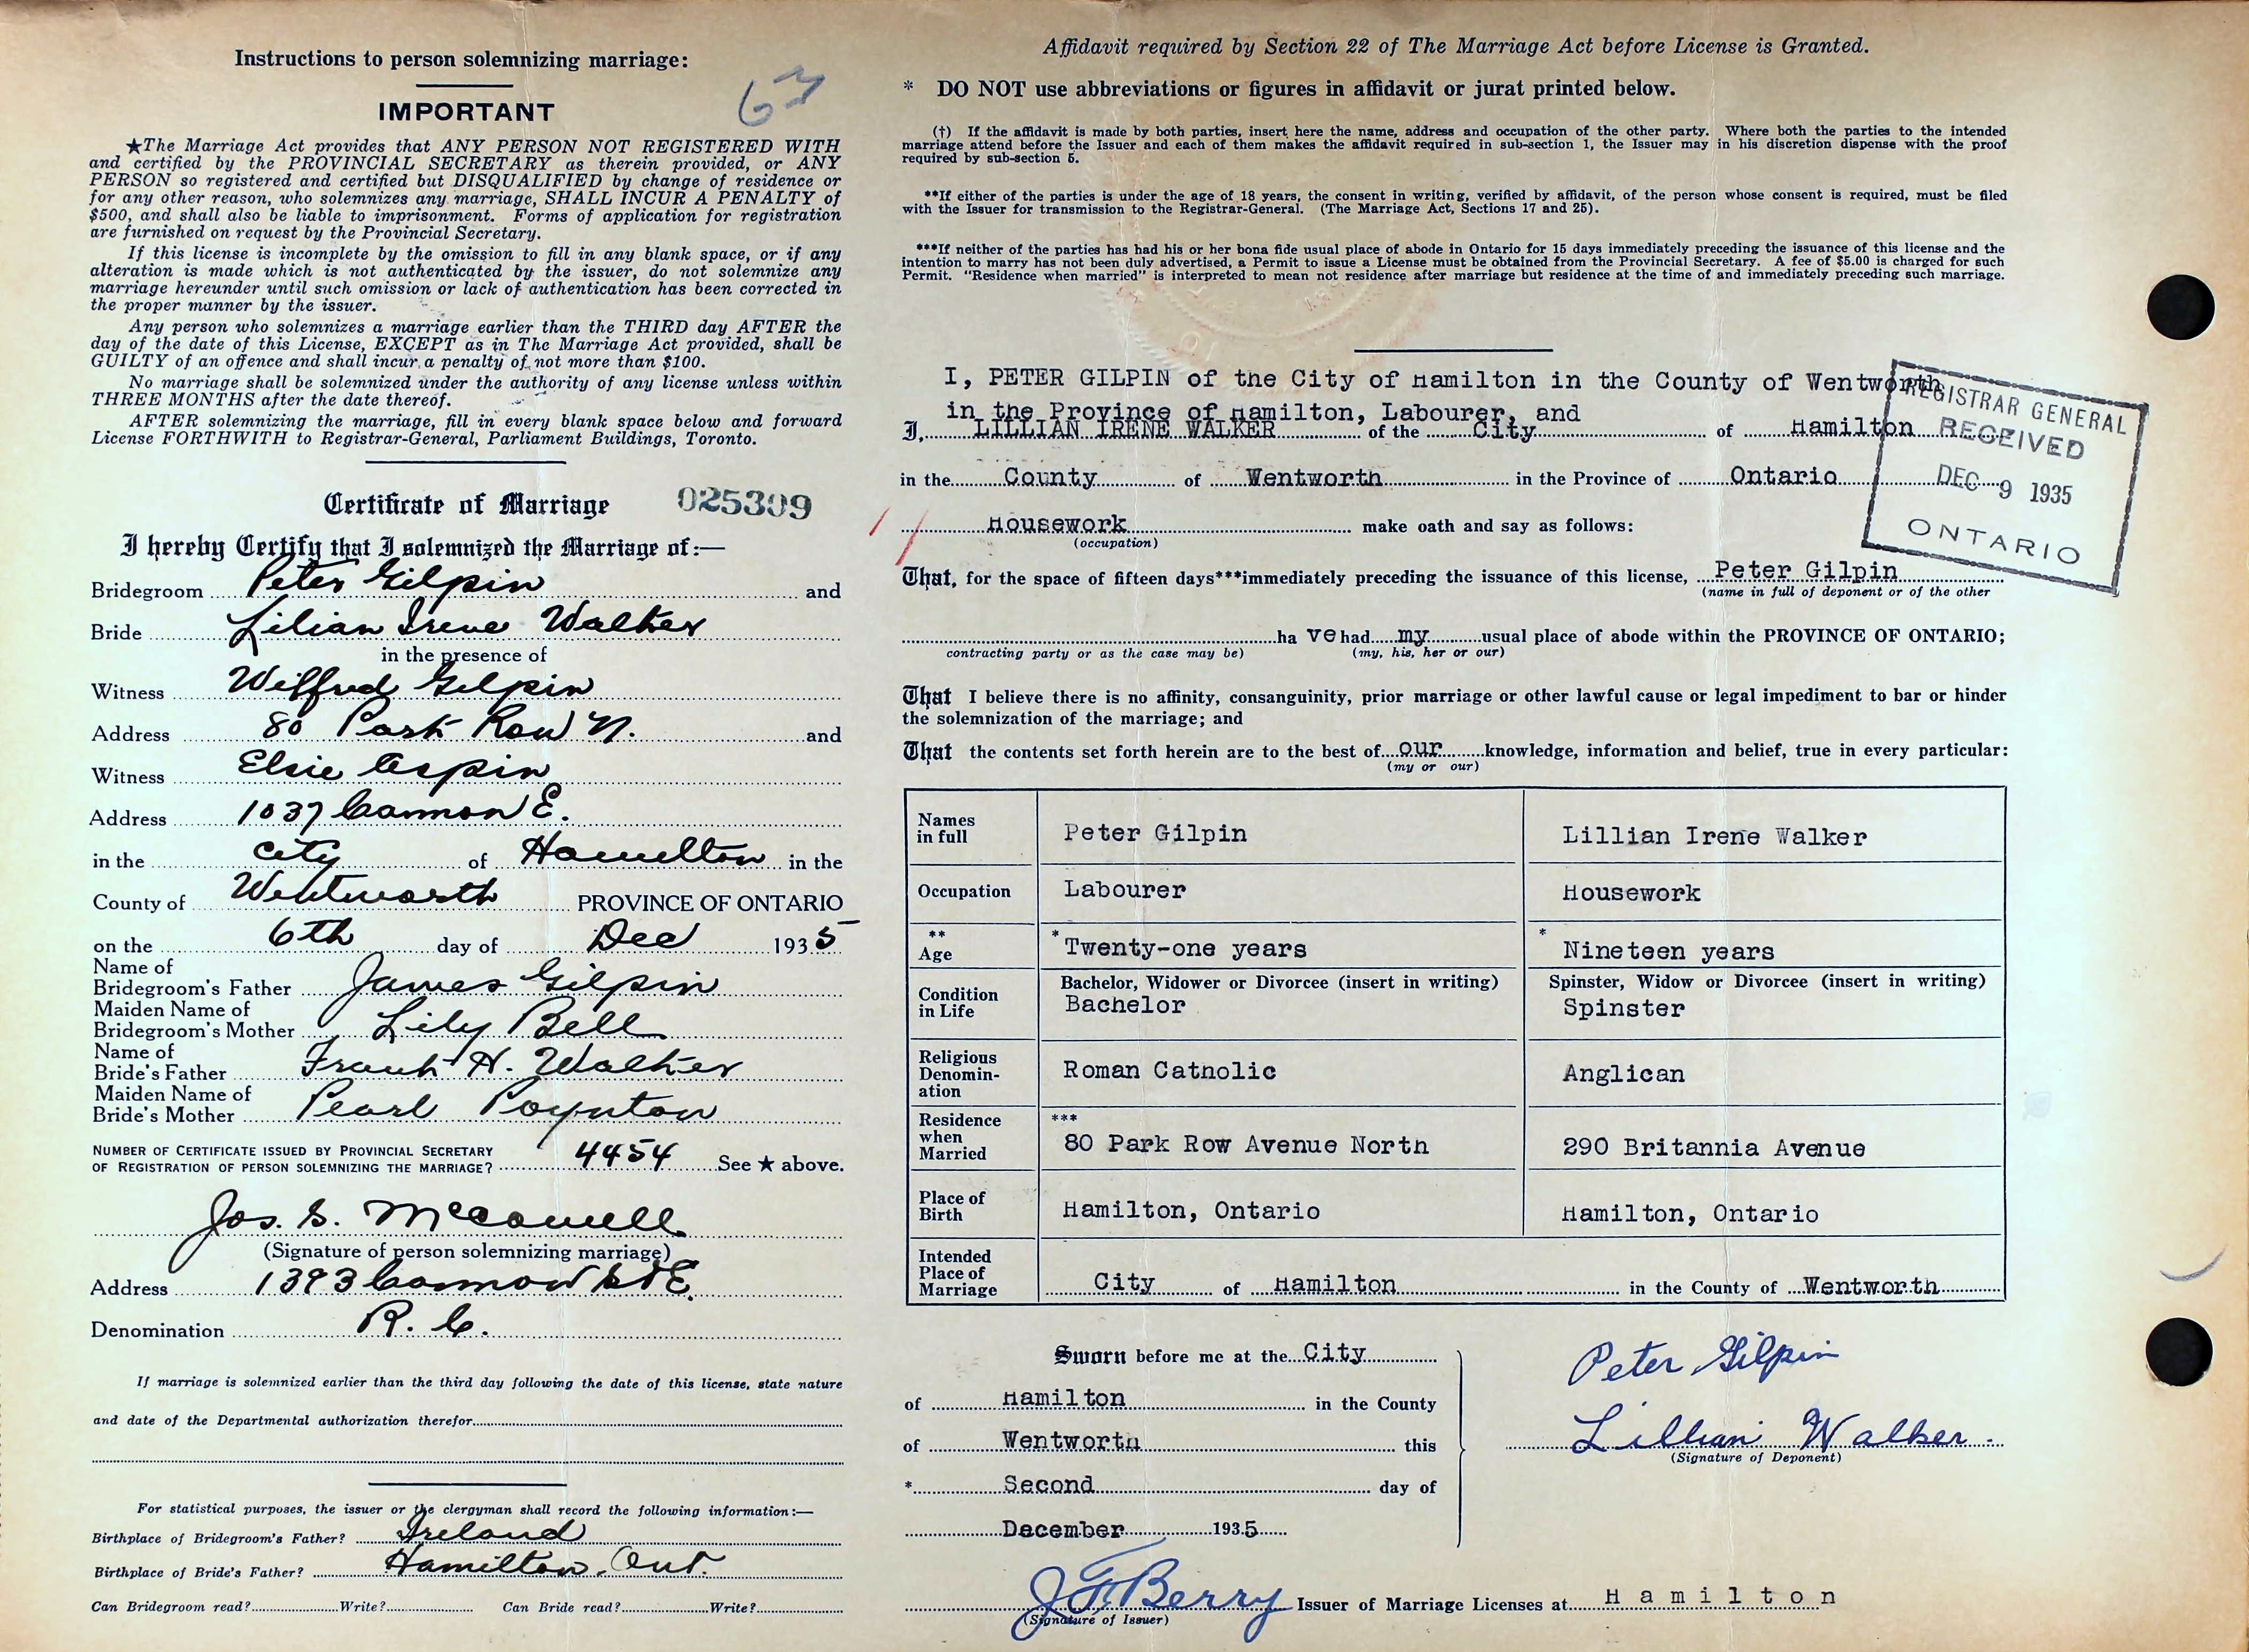 Instructions to person solemnizing marriage:
63
IMPORTANT
★The Marriage Act provides that ANY PERSON NOT REGISTERED WITH
and certified by the PROVINCIAL SECRETARY as therein provided, or ANY
PERSON so registered and certified but DISQUALIFIED by change of residence or
for any other reason, who solemnizes any marriage, SHALL INCUR A PENALTY of
$500, and shall also be liable to imprisonment. Forms of application for registration
are furnished on request by the Provincial Secretary.
If this license is incomplete by the omission to fill in any blank space, or if any
alteration is made which is not authenticated by the issuer, do not solemnize any
marriage hereunder until such omission or lack of authentication has been corrected in
the proper manner by the issuer.
Any person who solemnizes a marriage earlier than the THIRD day AFTER the
day of the date of this License, EXCEPT as in The Marriage Act provided, shall be
GUILTY of an offence and shall incur a penalty of not more than $100.
No marriage shall be solemnized under the authority of any license unless within
THREE MONTHS after the date thereof.
AFTER solemnizing the marriage, fill in every blank space below and forward
License FORTHWITH to Registrar-General, Parliament Buildings, Toronto.
Certificate of Marriage 025309
I hereby Certify that I solemnized the Marriage of:—
Bridegroom Peter Gilpin and
Bride Lilian Irene Walker
in the presence of
Witness Wilfred Gilpin
Address 80 Park Row N. and
Witness Elsie Aspin
Address 1037 Cannon E.
in the City of Hamilton in the
County of Wentworth PROVINCE OF ONTARIO
on the 6th day of Dec 1935
Name of
Bridegroom's Father James Gilpin
Maiden Name of
Bridegroom's Mother Lily Bell
Name of
Bride's Father Frank H. Walker
Maiden Name of
Bride's Mother Pearl Poynton
NUMBER OF CERTIFICATE ISSUED BY PROVINCIAL SECRETARY
OF REGISTRATION OF PERSON SOLEMNIZING THE MARRIAGE? 4454 See ★ above.
Jos. S.
(Signature of person solemnizing marriage)
Address 1393 Cannon St E.
Denomination R. C.
If marriage is solemnized earlier than the third day following the date of this license, state nature
and date of the Departmental authorization therefor
For statistical purposes, the issuer or the clergyman shall record the following information:—
Birthplace of Bridegroom's Father? Ireland
Birthplace of Bride's Father? Hamilton, Ont.
Can Bridegroom read? Write? Can Bride read? Write?
Affidavit required by Section 22 of The Marriage Act before License is Granted.
* DO NOT use abbreviations or figures in affidavit or jurat printed below.
(†) If the affidavit is made by both parties, insert here the name, address and occupation of the other party. Where both the parties to the intended
marriage attend before the Issuer and each of them makes the affidavit required in sub-section 1, the Issuer may in his discretion dispense with the proof
required by sub-section 5.
**If either of the parties is under the age of 18 years, the consent in writing, verified by affidavit, of the person whose consent is required, must be filed
with the Issuer for transmission to the Registrar-General. (The Marriage Act, Sections 17 and 25).
***If neither of the parties has had his or her bona fide usual place of abode in Ontario for 15 days immediately preceding the issuance of this license and the
intention to marry has not been duly advertised, a Permit to issue a License must be obtained from the Provincial Secretary. A fee of $5.00 is charged for such
Permit. "Residence when married" is interpreted to mean not residence after marriage but residence at the time of and immediately preceding such marriage.
I, PETER GILPIN of the City of Hamilton in the County of Wentworth
in the Province of Hamilton, Labourer, and
I, LILLIAN IRENE WALKER of the City of Hamilton
in the County of Wentworth in the Province of Ontario
Housework make oath and say as follows:
(occupation)
REGISTRAR GENERAL
RECEIVED
DEC 9 1935
ONTARIO
That, for the space of fifteen days***immediately preceding the issuance of this license, Peter Gilpin
(name in full of deponent or of the other
ha ve had my usual place of abode within the PROVINCE OF ONTARIO;
contracting party or as the case may be) (my, his, her or our)
That I believe there is no affinity, consanguinity, prior marriage or other lawful cause or legal impediment to bar or hinder
the solemnization of the marriage; and
That the contents set forth herein are to the best of our knowledge, information and belief, true in every particular:
(my or our)
Names
in full Peter Gilpin Lillian Irene Walker
Occupation Labourer Housework
** * *
Age Twenty-one years Nineteen years
Condition
in Life Bachelor, Widower or Divorcee (insert in writing) Spinster, Widow or Divorcee (insert in writing)
Bachelor Spinster
Religious
Denomin-
ation Roman Catholic Anglican
Residence
when
Married *** 80 Park Row Avenue North 290 Britannia Avenue
Place of
Birth Hamilton, Ontario Hamilton, Ontario
Intended
Place of
Marriage City of Hamilton in the County of Wentworth
Sworn before me at the City
of Hamilton in the County
of Wentworth this
* Second day of
December 1935
Peter Gilpin
Lillian Walker.
(Signature of Deponent)
J F Berry Issuer of Marriage Licenses at Hamilton
(Signature of Issuer)